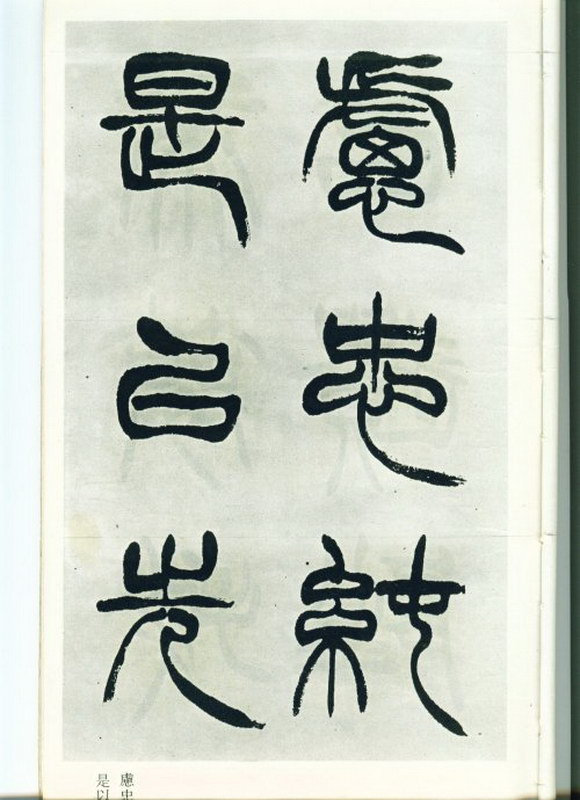 慮忠純
是以先
慮忠
是以